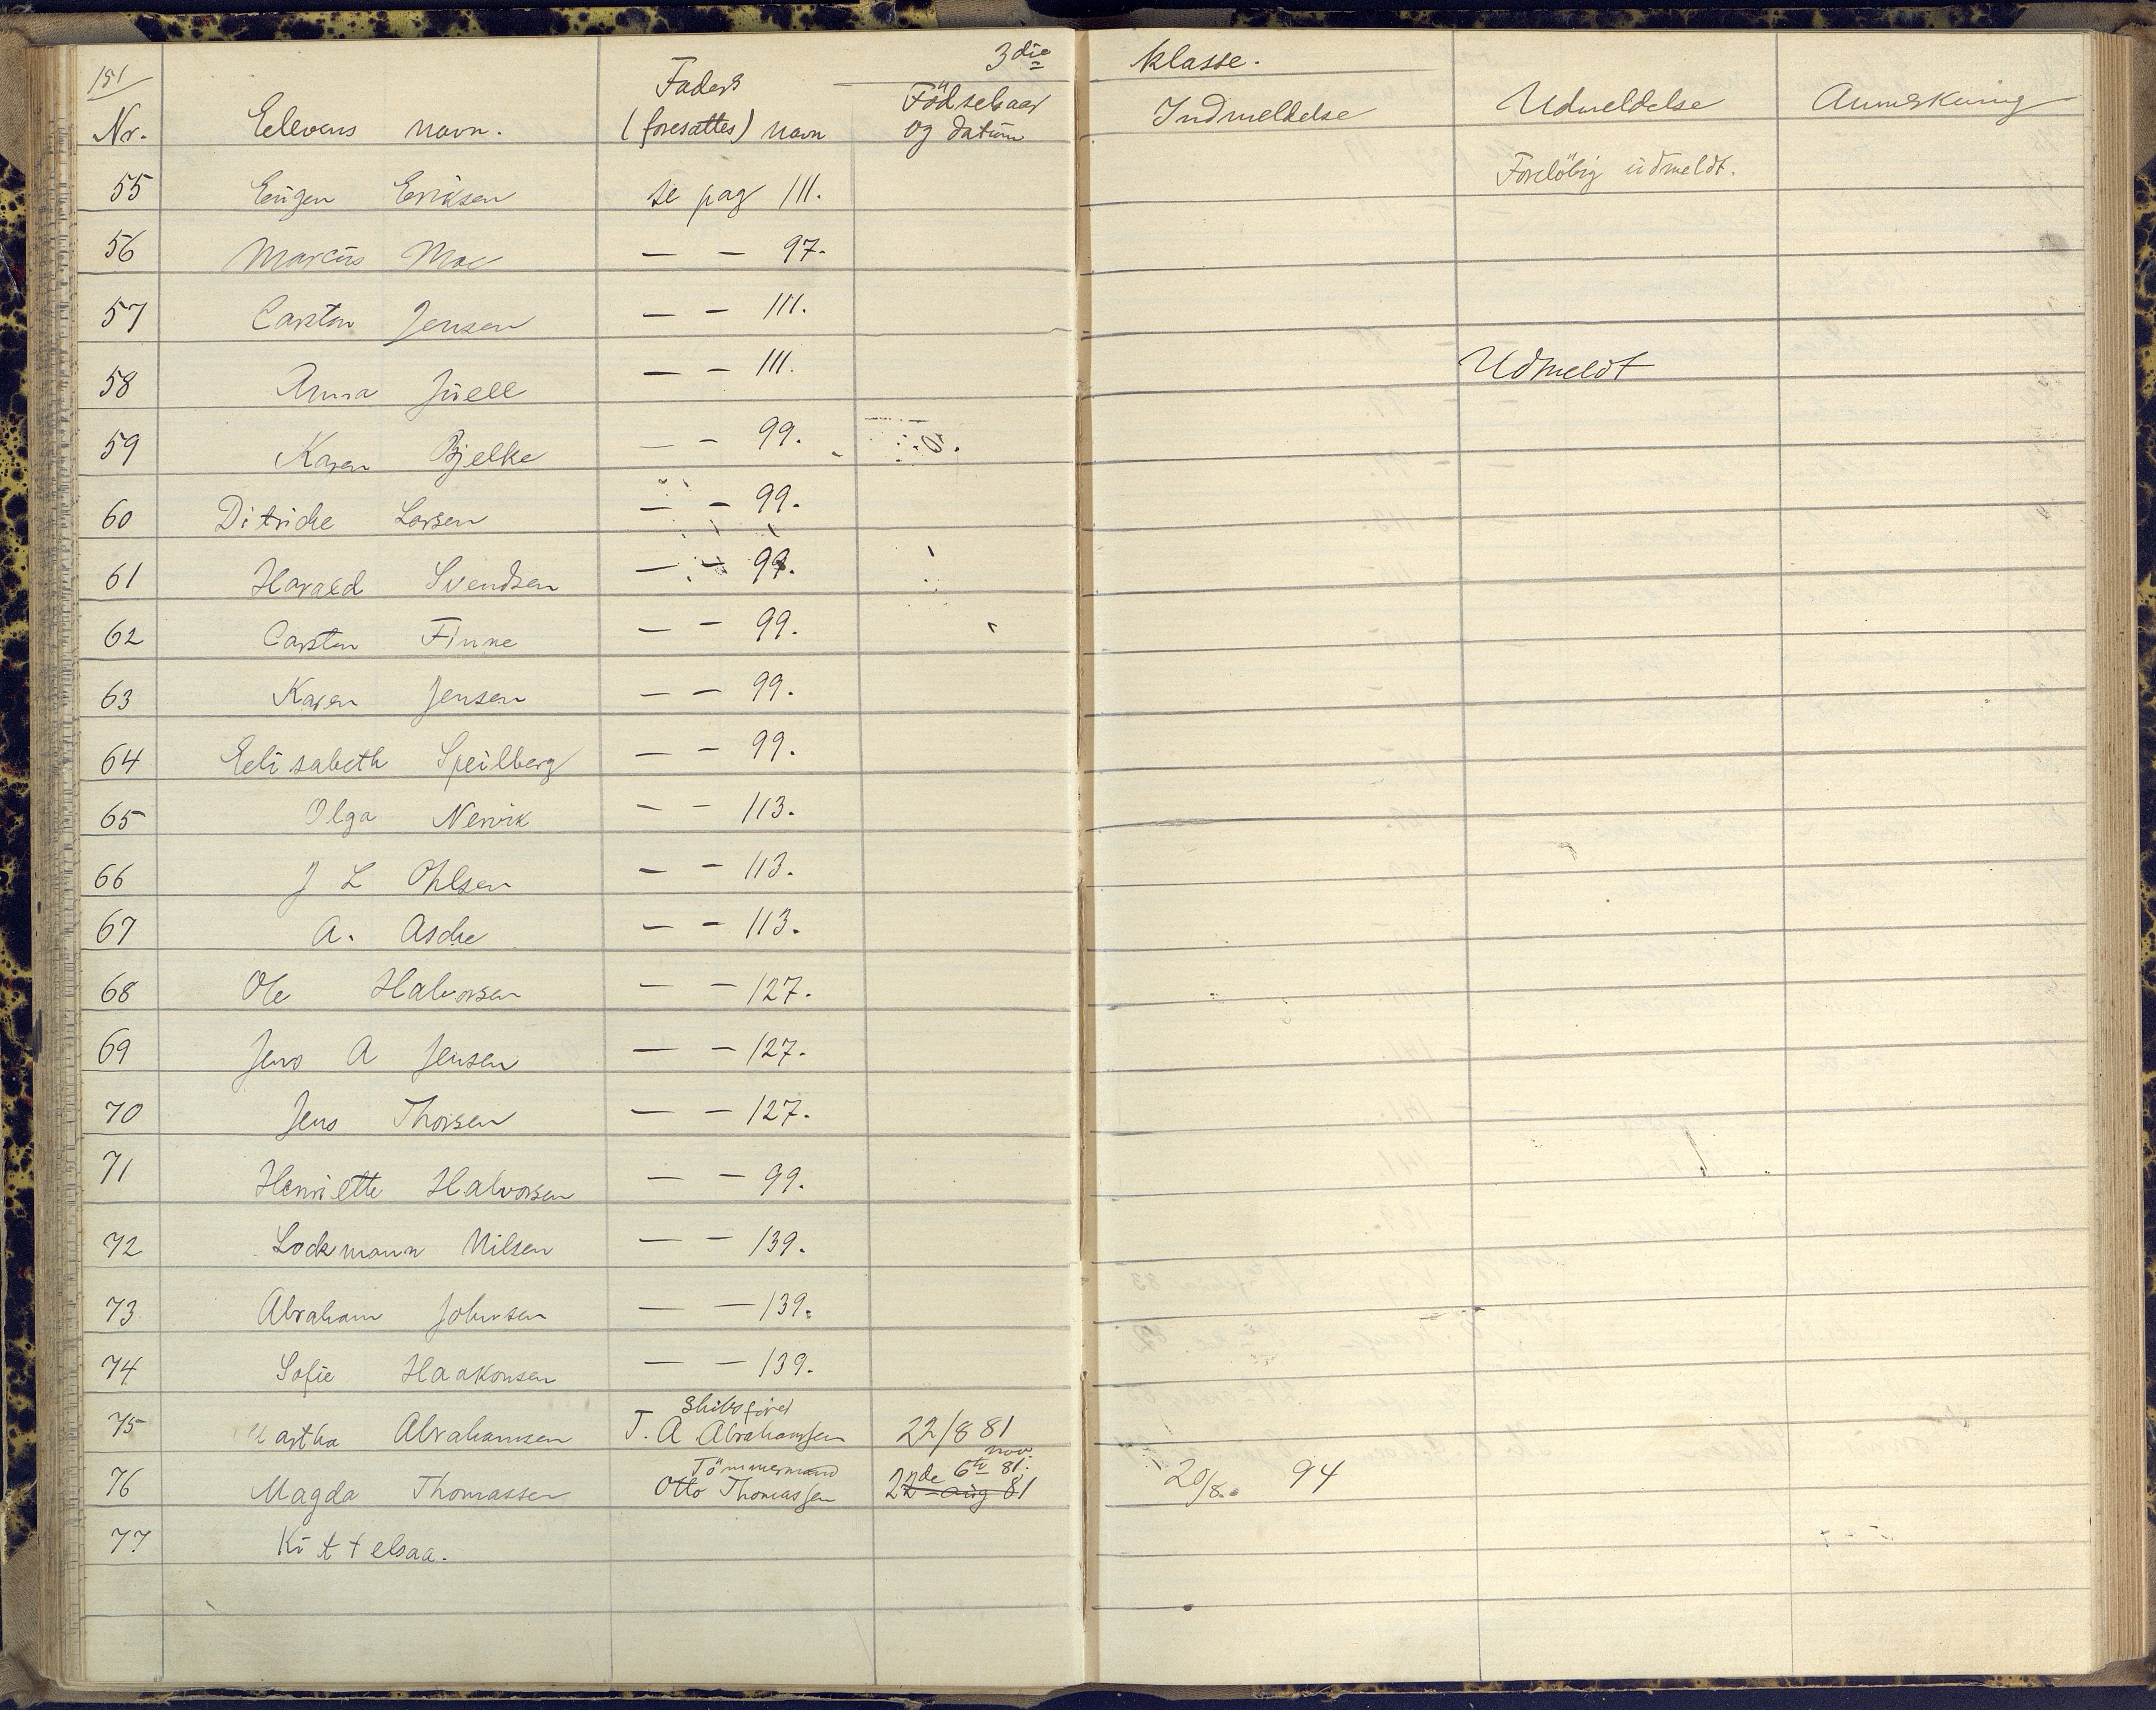 151
3die klasse.
Nr. Elevens navn. Faders (foresattes) navn Födselsaar og datum Indmeldelse Udmeldelse Anmerkning
55 Eugen Eriksen se pag 111. Foreløbig udmeldt.
56 Marcus Moe — — 97.
57 Carsten Jensen — — 111.
58 Anna Juell — — 111. Udmeldt
59 Karen Bjelke — — 99.
60 Ditriche Larsen — — 99.
61 Harald Svendsen — — 99.
62 Carsten Finne — — 99.
63 Karen Jensen — — 99.
64 Elisabeth Speilberg — — 99.
65 Olga Nervik — — 113.
66 J L Ohlsen — — 113.
67 A. Asche — — 113.
68 Ole Halvorsen — — 127.
69 Jens A Jensen — — 127.
70 Jens Thorsen — — 127.
71 Henriette Halvorsen — — 99.
72 Lockmann Nilsen — — 139.
73 Abraham Johnsen — — 139.
74 Sofie Haakonsen — — 139.
Skibsfører
75 Martha Abrahamsen T. A. Abrahamsen 22/8 81
Tömmermand 6te nov. 81.
76 Magda Thomassen Otto Thomassen 22de aug 81 20/8. 94
77 Kittelsaa.